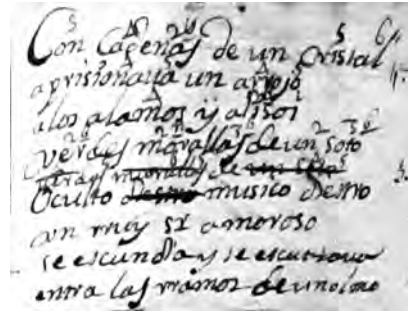 Con Cadenas de un Cristal
aprisionaua un arroyo
a los alamos y alisos
verdes murallas de un soto
verdes murallas de un soto
Oculto musico Destro
un ruy sr amoroso
se escundia y se escuchaua
entra las ramos de un olmo